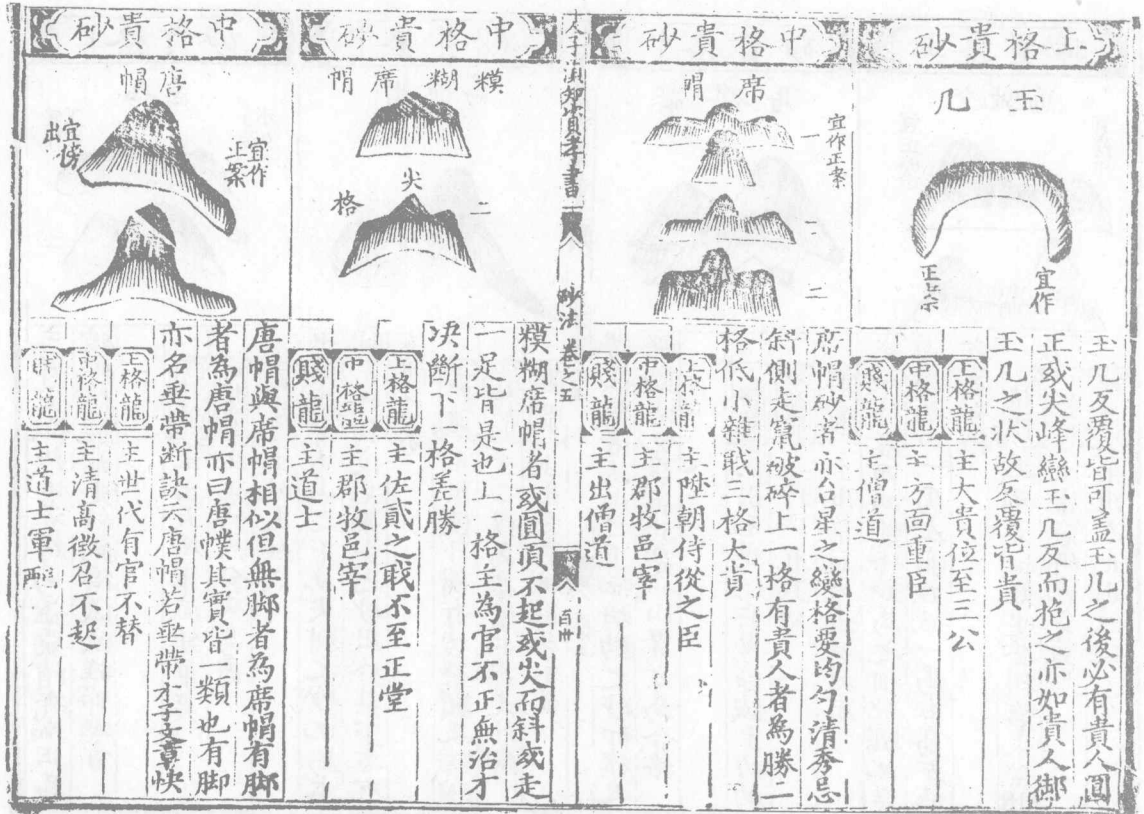 上格貴砂
玉几
宜作
正案
玉几反覆皆可盖玉几之後必有貴人圓
正或尖峰巒玉几反而抱之亦如貴人御
玉几之状故反覆皆貴
上格龍
主大貴位至三公
中格龍
主方面重臣
賤龍
主僧道
中格貴砂
席帽
宜作正案
一
二
席帽砂者亦台星之變格要均勻清秀忌
斜側走竄破碎上一格有貴人者為勝二
格低小雜職三格大貴
上格龍
主陞朝侍從之臣
中格龍
主郡牧邑宰
賤龍
主出僧道
人子須知資孝書
砂法
卷之五
百卅
中格貴砂
糢糊席帽
尖
二
格
糢糊席帽者或圓頂不起或尖而斜或走
一足皆是也上一格主為官不正無治才
决斷下一格差勝
上格龍
主佐貳之職不至正堂
中格龍
主郡牧邑宰
賤龍
主道士
中格貴砂
唐帽
宜作
正案
宜傍
出
唐帽與席帽相似但無脚者為席帽有脚
者為唐帽亦曰唐幞其實皆一類也有脚
亦名垂帶断訣云唐帽若垂帶才子文章快
上格龍
主世代有官不替
中格龍
主清高徵召不起
賤龍
主道士軍